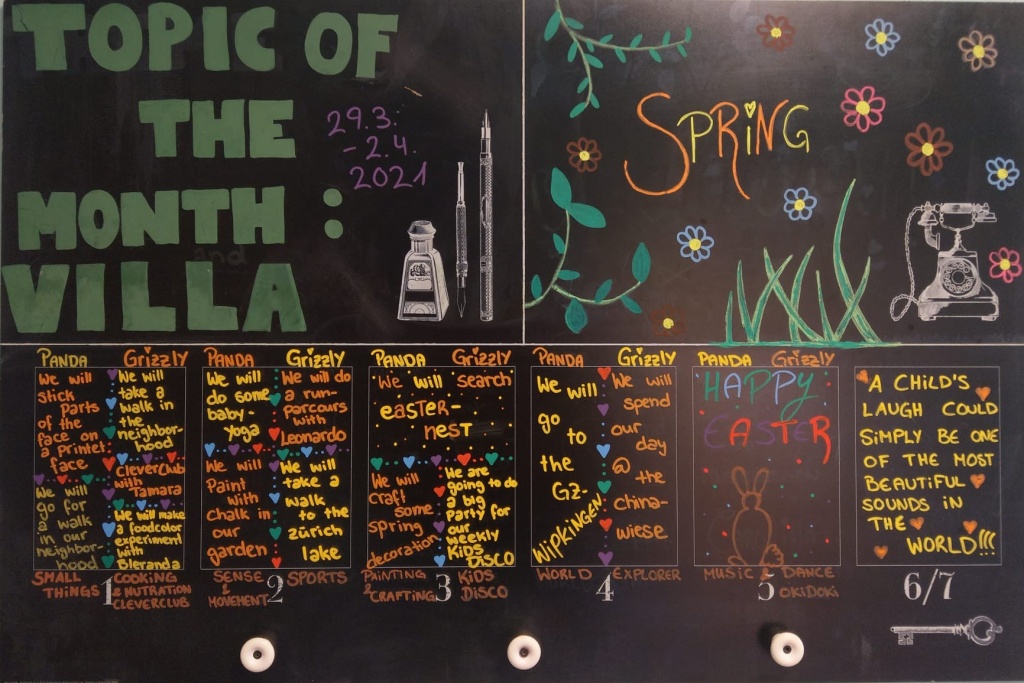 TOPIC OF
THE
MONTH :
VILLA
29.3.
- 2.4.
2021
SPRING
PANDA
We will
stick
parts
of the
face on
a printer.
face
We will
go for
a walk
in our
neighbor-
hood
Grizzly
We will
take a
walk in
the
neighbor-
hood
CleverClub
with
Tamara
We will make
a foodcolor
experiment
with
Bleranda
SMALL
THINGS
1
COOKING
& NUTRATION
CLEVERCLUB
PANDA
We will
do some
baby-
yoga
We will
Paint
with
chalk in
our
garden
Grizzly
We will do
a run-
parcours
with
Leonardo
We will
take a
walk
to the
zürich
lake
SENSE
&
MOVEMENT
2
SPORTS
PANDA Grizzly
We will search
easter-
nest
We will
craft
some
spring
decoration
We are
going to do
a big
Party for
our
weekly
KiDS
DiSCO
PAINTING
& CRAFTING
3
KiDS
DiSCO
PANDA
We will
go
to
the
GZ-
WipkiNGEN
Grizzly
We will
spend
our
day
@
the
china-
wiese
WORLD EXPLORER
4
PANDA Grizzly
HAPPY
EASTER
MUSIC & DANCE
5
OKiDOKi
A CHiLD'S
LAUGH COULD
SiMPLY BE ONE
OF THE MOST
BEAUTiFUL
SOUNDS iN
THE
WORLD!!!
6/7